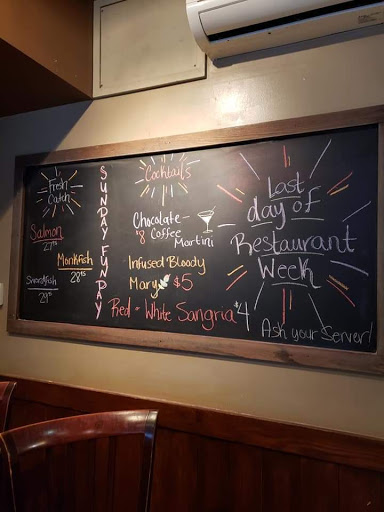 Fresh
Catch
Salmon
Monkfish
Swordfish
SUNDAY FUNDAY
Cocktails
Chocolate-
$8 Coffee
Martini
Infused Bloody
Mary $5
Red or White Sangria $4
Last
day of
Restaurant
Week
Ask your Server!